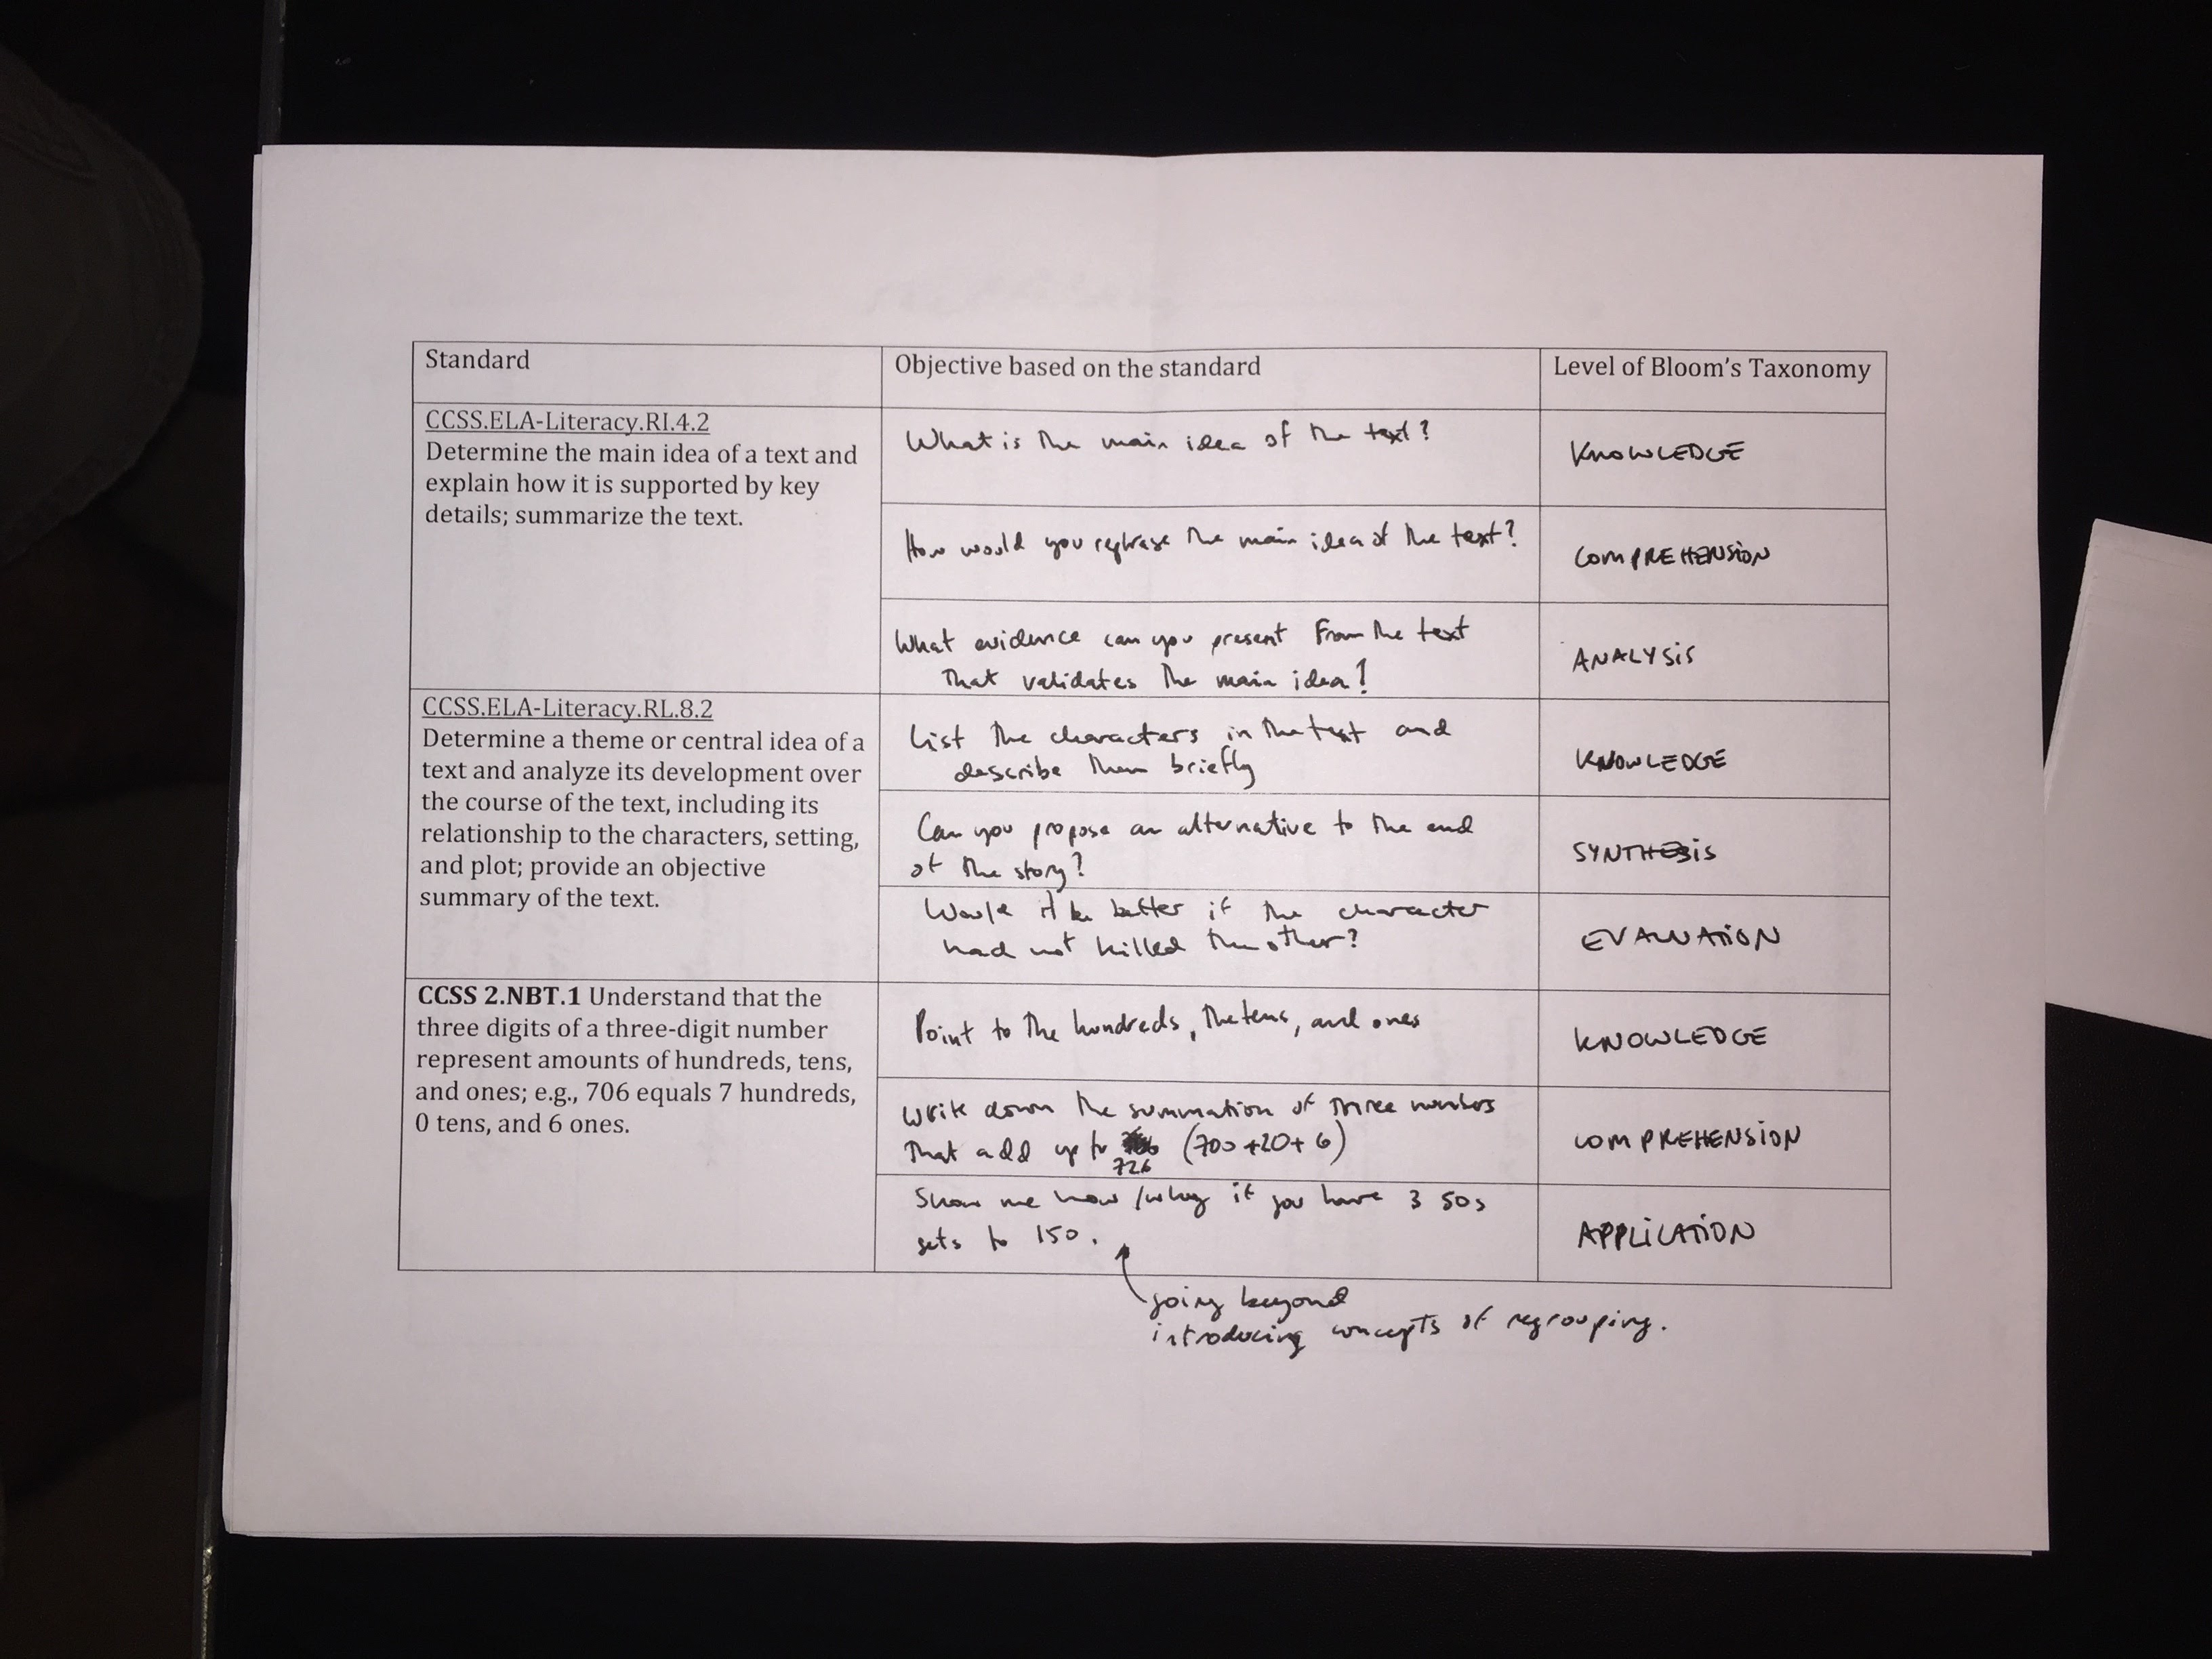 Standard
Objective based on the standard
Level of Bloom's Taxonomy
CCSS.ELA-Literacy.RI.4.2
Determine the main idea of a text and
explain how it is supported by key
details; summarize the text.
What is the main idea of the text?
KNOWLEDGE
How would you rephrase the main idea of the text?
COMPREHENSION
What evidence can you present from the text
that validates the main idea?
ANALYSIS
CCSS.ELA-Literacy.RL.8.2
Determine a theme or central idea of a
text and analyze its development over
the course of the text, including its
relationship to the characters, setting,
and plot; provide an objective
summary of the text.
List the characters in the text and
describe them briefly
KNOWLEDGE
Can you propose an alternative to the end
of the story?
SYNTHESIS
Would it be better if the character
had not killed the other?
EVALUATION
CCSS 2.NBT.1 Understand that the
three digits of a three-digit number
represent amounts of hundreds, tens,
and ones; e.g., 706 equals 7 hundreds,
0 tens, and 6 ones.
Point to the hundreds, the tens, and ones
KNOWLEDGE
Write down the summation of three numbers
that add up to (700+20+6)
726
COMPREHENSION
Show me how/why if you have 3 50s
gets to 150.
APPLICATION
going beyond
introducing concepts of regrouping.